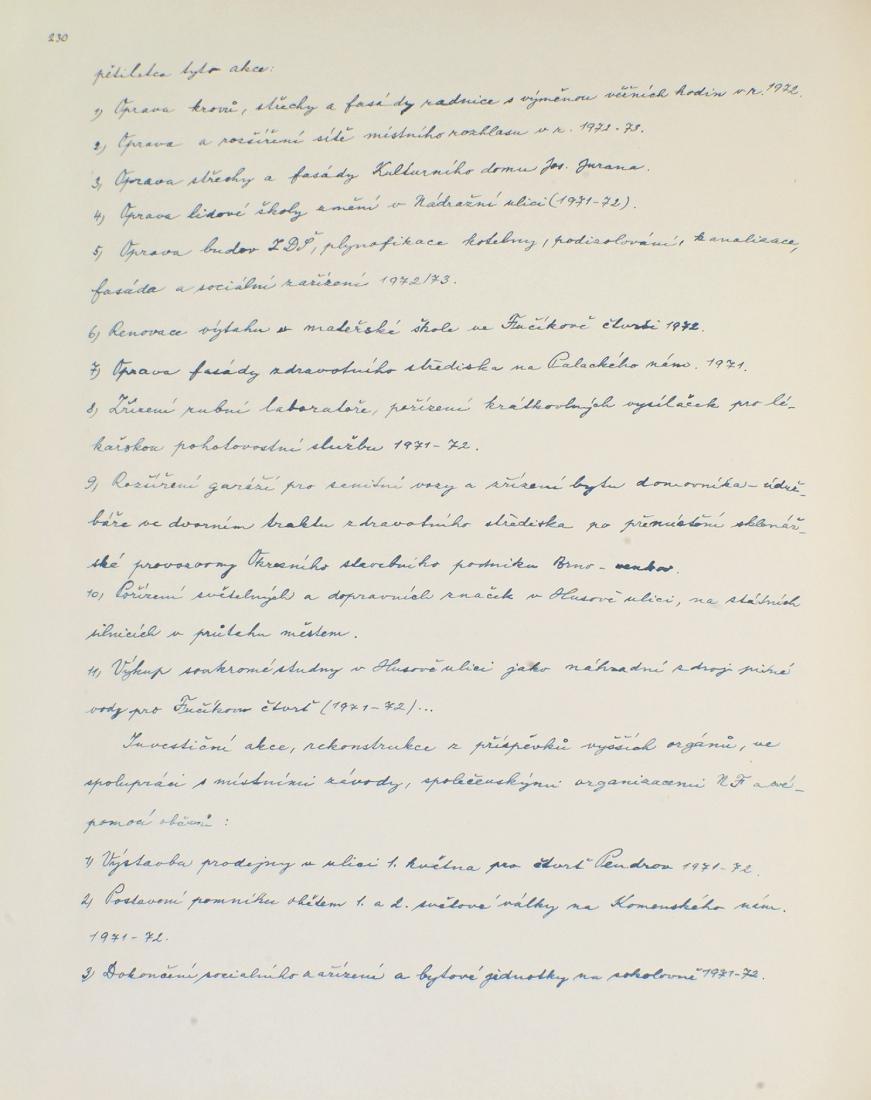 230
pětiletce tyto akce:
1) Oprava krovů, střechy a fasády radnice s výměnou věžních hodin v r. 1972.
2) Oprava a rozšíření sítě místního rozhlasu v r. 1972-73.
3) Oprava střechy a fasády Kulturního domu Jos. Jurana.
4) Oprava lidové školy umění v Nádražní ulici (1971-72).
5) Oprava budov ZDŠ, plynofikace kotelny, podizolování, kanalizace,
fasáda a sociální zařízení 1972/73.
6) Renovace výtahu v mateřské škole ve Fučíkově čtvrti 1972.
7) Oprava fasády zdravotního střediska na Palackého nám. 1971.
8) Zřízení zubní laboratoře, pořízení krátkovlných vysílaček pro lé-
kařskou pohotovostní službu 1971-72.
9) Rozšíření garáží pro sanitní vozy a zřízení bytu domovníka-údrž-
báře ve dvorním traktu zdravotního střediska po přemístění sklenář-
ské provozovny Okresního stavebního podniku Brno-venkov.
10) Pořízení světelných a dopravních značek v Husově ulici, na státních
silnicích v průtahu městem.
11) Výkup soukromé studny v Husově ulici jako náhradní zdroj pitné
vody pro Fučíkovu čtvrť (1971-72)...
Investiční akce, rekonstrukce z příspěvků vyšších orgánů, ve
spolupráci s místními závody, společenskými organizacemi NF a své-
pomocí občanů :
1) Výstavba prodejny v ulici 1. května pro čtvrť Pendrov 1971-72.
2) Postavení pomníku obětem 1. a 2. světové války na Komenského nám.
1971-72.
3) Dokončení sociálního zařízení a bytové jednotky na sokolovně 1971-72.